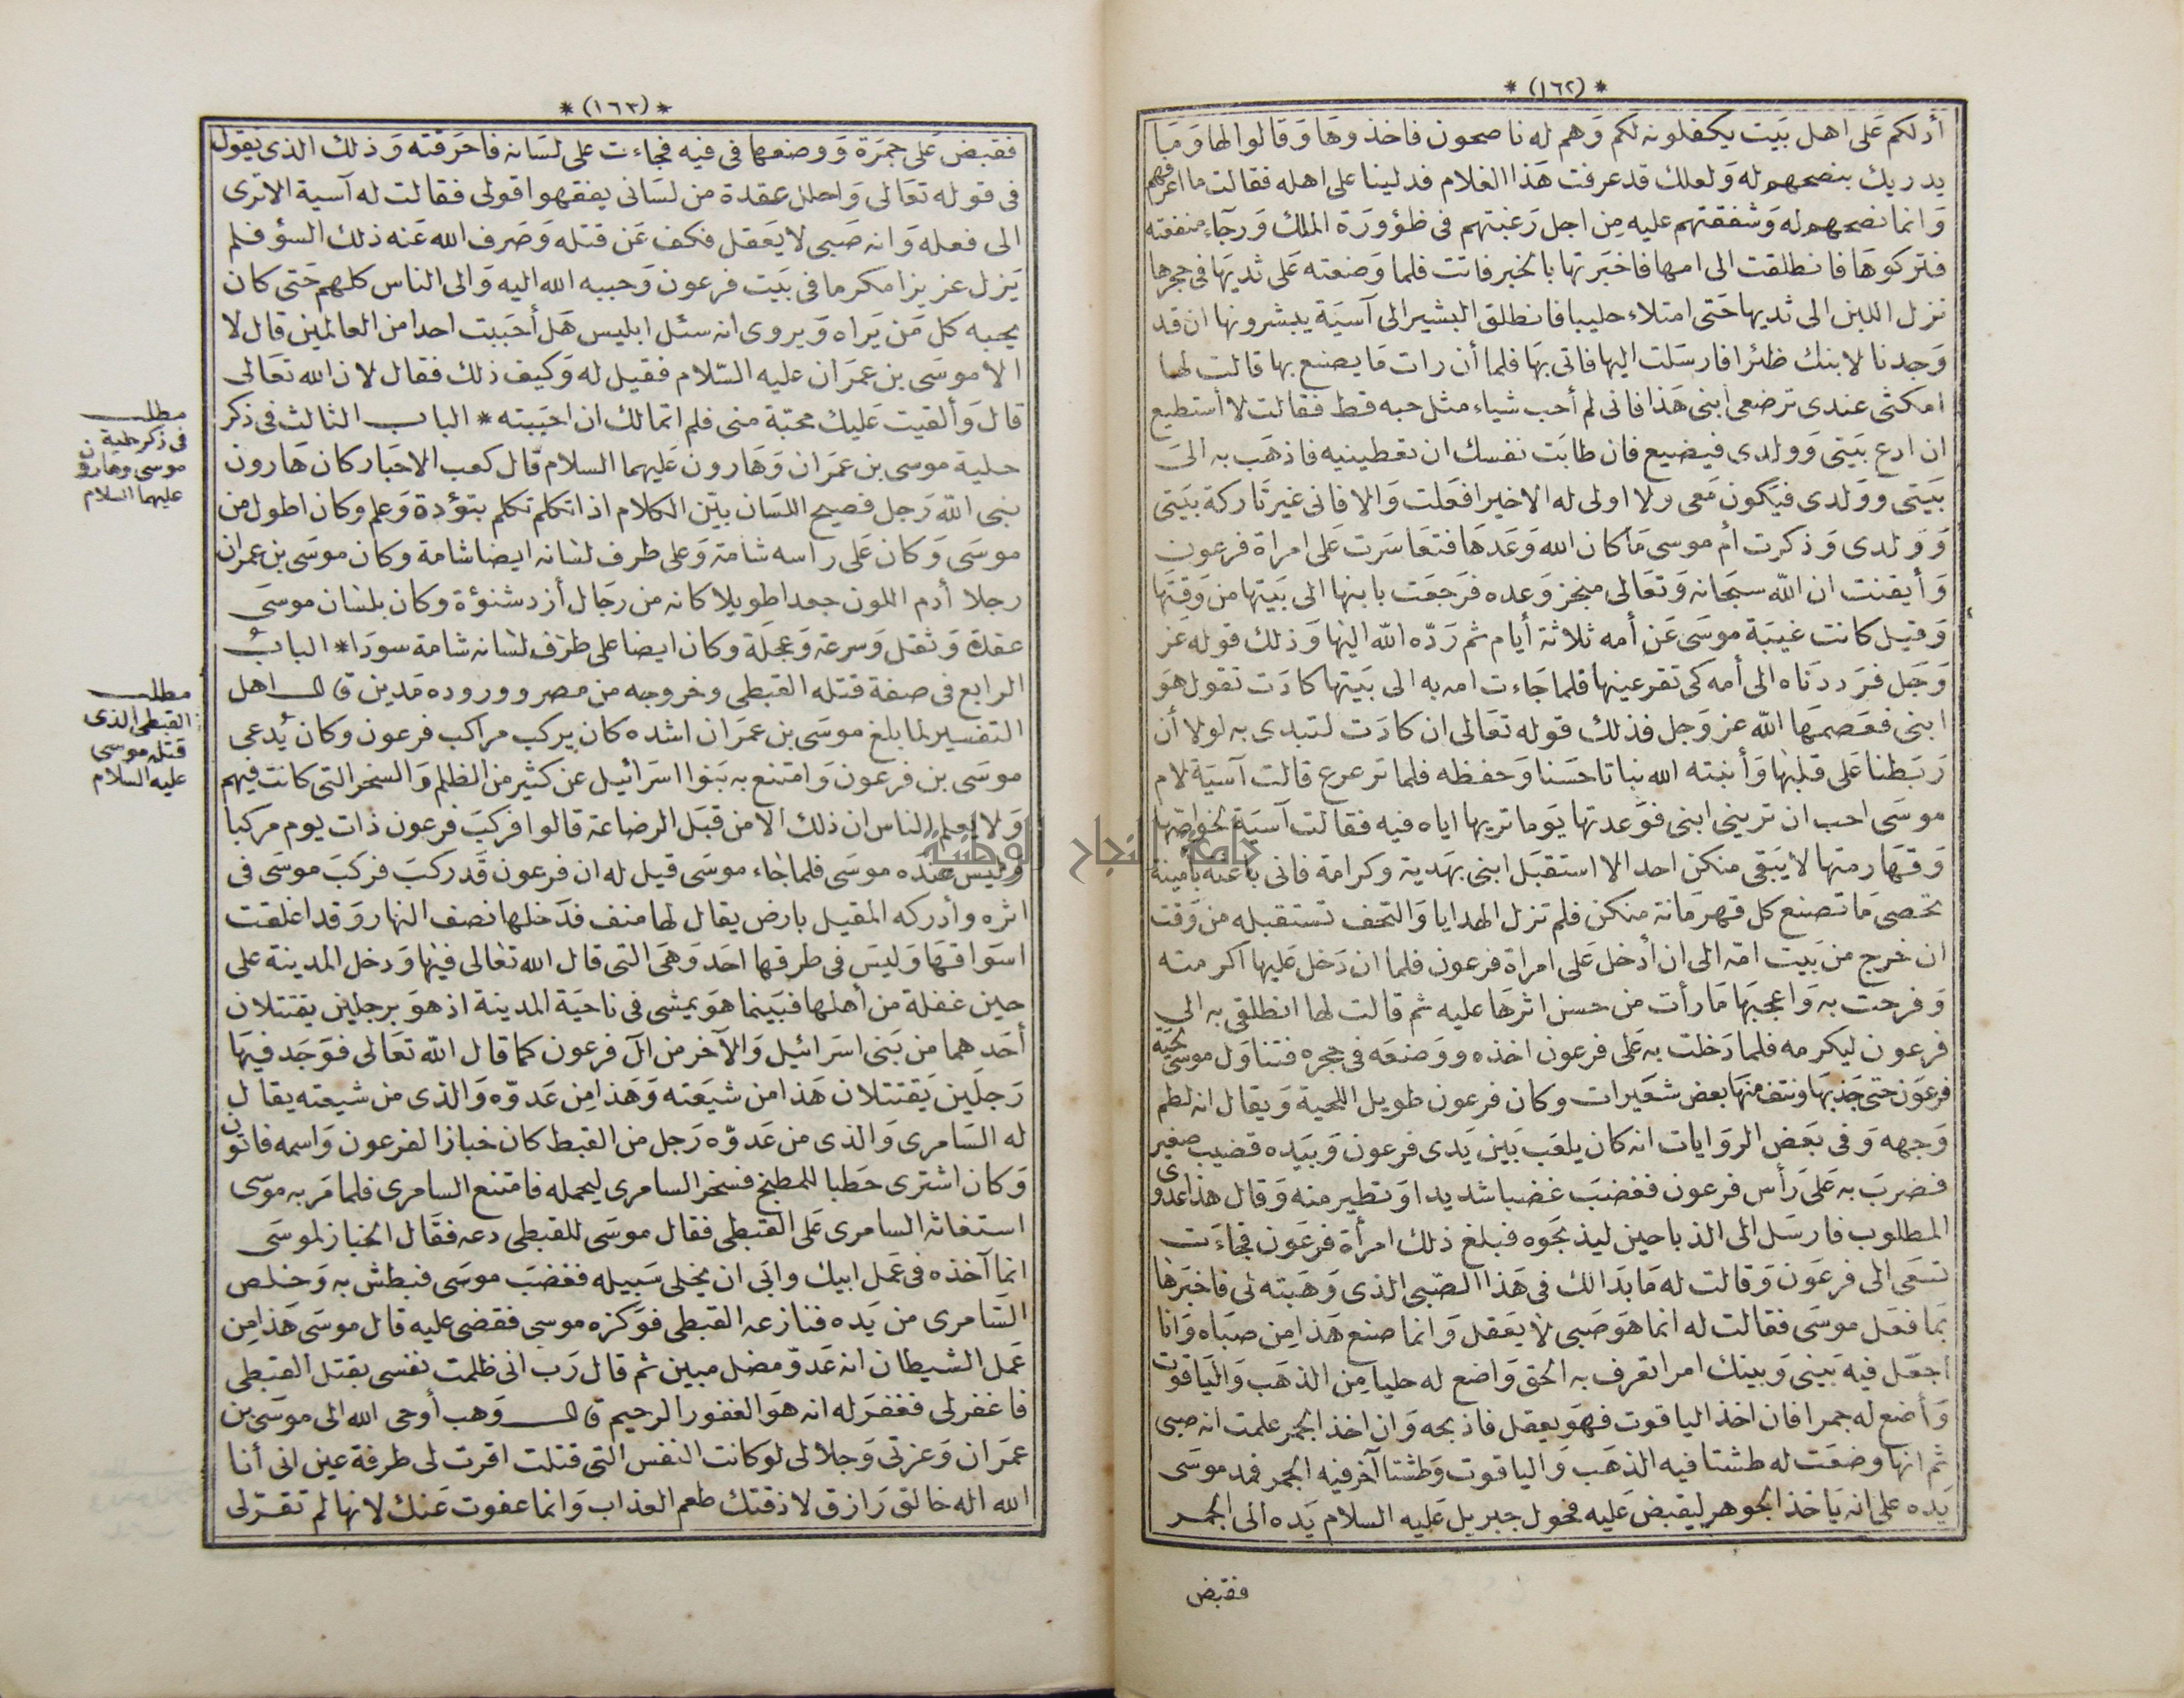 * (١٦٢) *
أدلكم على اهل بيت يكفلونه لكم وهم له ناصحون فاخذوها وقالوا لها وما
يدريك بنصحهم له ولعلك قد عرفت هذا الغلام فدلينا على اهله فقالت ما اعرفهم
وانما نصحهم له وشفقتهم عليه من اجل رغبتهم فى ظؤورة الملك ورجآء منفعته
فتركوها فانطلقت الى امها فاخبرتها بالخبر فاتت فلما وضعته على ثديها فى حجرها
نزل اللبن الى ثديها حتى امتلاء حليبا فانطلق البشير الى آسية يبشرونها ان قد
وجدنا لابنك ظئرا فارسلت اليها فاتى بها فلما أن رات ما يصنع بها قالت لها
امكثى عندى ترضعى ابنى هذا فانى لم أحب شياء مثل حبه قط فقالت لا أستطيع
ان ادع بيتى وولدى فيضيع فان طابت نفسك ان تعطينيه فاذهب به الى
بيتى وولدى فيكون معى ولا اولى له الاخيرا فعلت والا فانى غير تاركة بيتى
وولدى وذكرت أم موسى ما كان الله وعدها فتعاسرت على امراة فرعون
وأيقنت ان الله سبحانه وتعالى منجز وعده فرجعت بابنها الى بيتها من وقتها
وقيل كانت غيبة موسى عن أمه ثلاثة أيام ثم رده الله اليها وذلك قوله عز
وجل فرددناه الى أمه كى تقر عينها فلما جاءت امه به الى بيتها كادت تقول هو
ابنى فعصمها الله عز وجل فذلك قوله تعالى ان كادت لتبدى به لولا أن
ربطنا على قلبها وأنبته الله نباتا حسنا وحفظه فلما ترعرع قالت آسية لام
موسى احب ان ترينى ابنى فوعدتها يوما تريها اياه فيه فقالت آسية لخواصها
وقهارمتها لا يبقى منكن احد الا استقبل ابنى بهدية وكرامة فانى باعثة بامينة
تحصى ما تصنع كل قهرمانة منكن فلم تزل الهدايا والتحف تستقبله من وقت
ان خرج من بيت امه الى ان أدخل على امراة فرعون فلما ان دخل عليها اكرمته
وفرحت به واعجبها ما رأت من حسن اثرها عليه ثم قالت لها انطلقى به الى
فرعون ليكرمه فلما دخلت به على فرعون اخذه ووضعه فى حجره فتناول موسى لحية
فرعون حتى جذبها ونتف منها بعض شعيرات وكان فرعون طويل اللحية ويقال انه لطم
وجهه وفى بعض الروايات انه كان يلعب بين يدى فرعون وبيده قضيب صغير
فضرب به على رأس فرعون فغضب غضبا شديدا وتطير منه وقال هذا عدوى
المطلوب فارسل الى الذباحين ليذبحوه فبلغ ذلك امرأة فرعون فجاءت
تسعى الى فرعون وقالت له ما بدا لك فى هذا الصبى الذى وهبته لى فاخبرها
بما فعل موسى فقالت له انما هو صبى لا يعقل وانما صنع هذا من صباه وانا
أجعل فيه بينى وبينك امرا تعرف به الحق واضع له حليا من الذهب والياقوت
وأضع له جمرا فان اخذ الياقوت فهو يعقل فاذبحه وان اخذ الجمر علمت انه صبى
ثم انها وضعت له طشتا فيه الذهب والياقوت وطشتا آخر فيه الجمر فمد موسى
يده على انه ياخذ الجوهر ليقبض عليه فحول جبريل عليه السلام يده الى الجمر
فقبض
* (١٦٣) *
فقبض على جمرة ووضعها فى فيه فجاءت على لسانه فاحرقته وذلك الذى يقول
فى قوله تعالى واحلل عقدة من لسانى يفقهوا قولى فقالت له آسية الاترى
الى فعله وانه صبى لا يعقل فكف عن قتله وصرف الله عنه ذلك السؤ فلم
يزل عزيزا مكرما فى بيت فرعون وحببه الله اليه والى الناس كلهم حتى كان
يحبه كل من يراه ويروى انه سئل ابليس هل أحببت احدا من العالمين قال لا
الا موسى بن عمران عليه السلام فقيل له وكيف ذلك فقال لان الله تعالى
قال وألقيت عليك محبة منى فلم اتمالك ان احببته * الباب الثالث فى ذكر
حلية موسى بن عمران وهارون عليهما السلام قال كعب الاحبار كان هارون
نبى الله رجل فصيح اللسان بين الكلام اذا تكلم تكلم بتؤدة وعلم وكان اطول من
موسى وكان على راسه شامة وعلى طرف لسانه ايضا شامة وكان موسى بن عمران
رجلا أدم اللون جعدا طويلا كانه من رجال أزد شنؤة وكان بلسان موسى
عقدة وثقل وسرعة وعجلة وكان ايضا على طرف لسانه شامة سودا * الباب
الرابع فى صفة قتله القبطى وخروجه من مصر ووروده مدين قال اهل
التفسير لما بلغ موسى بن عمران اشده كان يركب مراكب فرعون وكان يدعى
موسى بن فرعون وامتنع به بنوا اسرائيل عن كثير من الظلم والسخر التى كانت فيهم
ولا يعلم الناس ان ذلك الا من قبل الرضاعة قالوا فركب فرعون ذات يوم مركبا
وليس عنده موسى فلما جاء موسى قيل له ان فرعون قد ركب فركب موسى فى
اثره وأدركه المقيل بارض يقال لها منف فدخلها نصف النهار وقد اغلقت
اسواقها وليس فى طرقها احد وهى التى قال الله تعالى فيها ودخل المدينة على
حين غفلة من أهلها فبينما هو يمشى فى ناحية المدينة اذ هو برجلين يقتتلان
أحدهما من بنى اسرائيل والآخر من آل فرعون كما قال الله تعالى فوجد فيها
رجلين يقتتلان هذا من شيعته وهذا من عدوه والذى من شيعته يقال
له السامرى والذى من عدوه رجل من القبط كان خبازا لفرعون واسمه فاتون
وكان اشترى حطبا للمطبخ فسخر السامرى ليحمله فامتنع السامرى فلما مر به موسى
استغاثه السامرى على القبطى فقال موسى للقبطى دعه فقال الخباز لموسى
انما آخذه فى عمل ابيك وابى ان يخلى سبيله فغضب موسى فبطش به وخلص
السامرى من يده فنازعه القبطى فوكزه موسى فقضى عليه قال موسى هذا من
عمل الشيطان انه عدو مضل مبين ثم قال رب انى ظلمت نفسى بقتل القبطى
فاغفر لى فغفر له انه هو الغفور الرحيم قال وهب أوحى الله الى موسى بن
عمران وعزتى وجلالى لو كانت النفس التى قتلت اقرت لى طرفة عين انى أنا
الله اله خالق رازق لاذقتك طعم العذاب وانما عفوت عنك لانها لم تقر لى
مطلب
فى ذكر حلية
موسى وهارون
عليهما السلام
مطلب
القبطى الذى
قتله موسى
عليه السلام
جامعة النجاح الوطنية